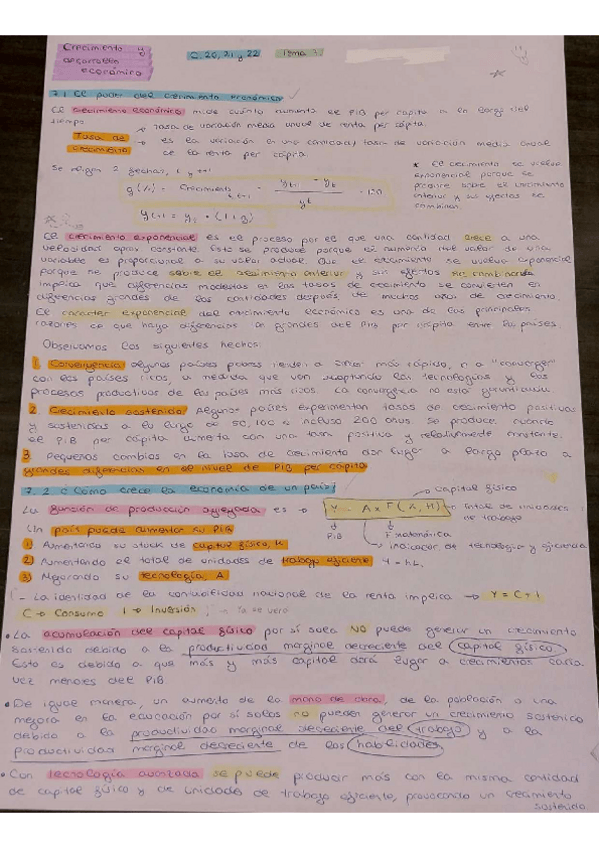 Crecimiento y
desarrollo
económico
C. 20, 21 y 22
Tema 7.
7.1 El poder del crecimiento económico
El crecimiento económico mide cuánto aumenta el PIB per cápita a lo largo del
tiempo
Tasa de variación media anual de renta per cápita.
Tasa de
crecimiento
es la variación en una cantidad/ tasa de variación media anual
de la renta per cápita
Se eligen 2 fechas, t y t+1
* El crecimiento se vuelve
exponencial porque se
produce sobre el crecimiento
anterior y sus efectos se
combinan.
g(%) = Crecimiento t, t+1 = (y t+1 - y t) / y t · 100
y t+1 = y t · (1+g)
El crecimiento exponencial es el proceso por el que una cantidad crece a una
velocidad aprox constante. Esto se produce porque el aumento del valor de una
variable es proporcional a su valor actual. Que el crecimiento se vuelva exponencial
porque se produce sobre el crecimiento anterior y sus efectos se combinan
implica que diferencias modestas en las tasas de crecimiento se convierten en
diferencias grandes de las cantidades después de muchos años de crecimiento.
El carácter exponencial del crecimiento económico es una de las principales
razones de que haya diferencias en grandes del PIB per cápita entre los países.
Observamos los siguientes hechos:
1. Convergencia algunos países pobres tienden a crecer más rápido, o a "converger"
con los países ricos, a medida que van adoptando las tecnologías y los
procesos productivos de los países más ricos. La convergencia no está garantizada
2. Crecimiento sostenido Algunos países experimentan tasas de crecimiento positivas
y sostenidas a lo largo de 50, 100 e incluso 200 años. Se produce cuando
el PIB per cápita aumenta con una tasa positiva y relativamente constante.
3. Pequeños cambios en la tasa de crecimiento dan lugar a largo plazo a
grandes diferencias en el nivel de PIB per cápita
7.2 ¿Cómo crece la economía de un país?
capital físico
La función de producción agregada es → Y = A x F(K, H)
total de unidades
de trabajo
PIB
F matemática
Indicador de tecnología y eficiencia
Un país puede aumentar su PIB
1) Aumentando su stock de capital físico, K
2) Aumentando el total de unidades de trabajo eficiente H = h·L
3) Mejorando su tecnología, A
- La identidad de la contabilidad nacional de la renta implica → Y = C + I
C → Consumo I → Inversión Ya se verá
• La acumulación del capital físico por sí sola NO puede generar un crecimiento
sostenido debido a la productividad marginal decreciente del capital físico.
Esto es debido a que más y más capital dará lugar a crecimientos cada
vez menores del PIB
• De igual manera, un aumento de la mano de obra, de la población o una
mejora en la educación por sí solas no pueden generar un crecimiento sostenido
debido a la productividad marginal decreciente del trabajo y a la
productividad marginal decreciente de las habilidades
• Con tecnología avanzada se puede producir más con la misma cantidad
de capital físico y de unidades de trabajo eficiente, provocando un crecimiento
sostenido